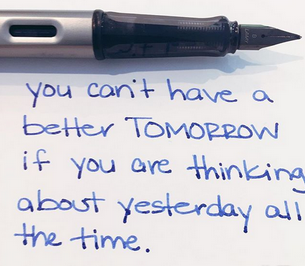 you can't have a
better TOMORROW
if you are thinking
about yesterday all
the time.